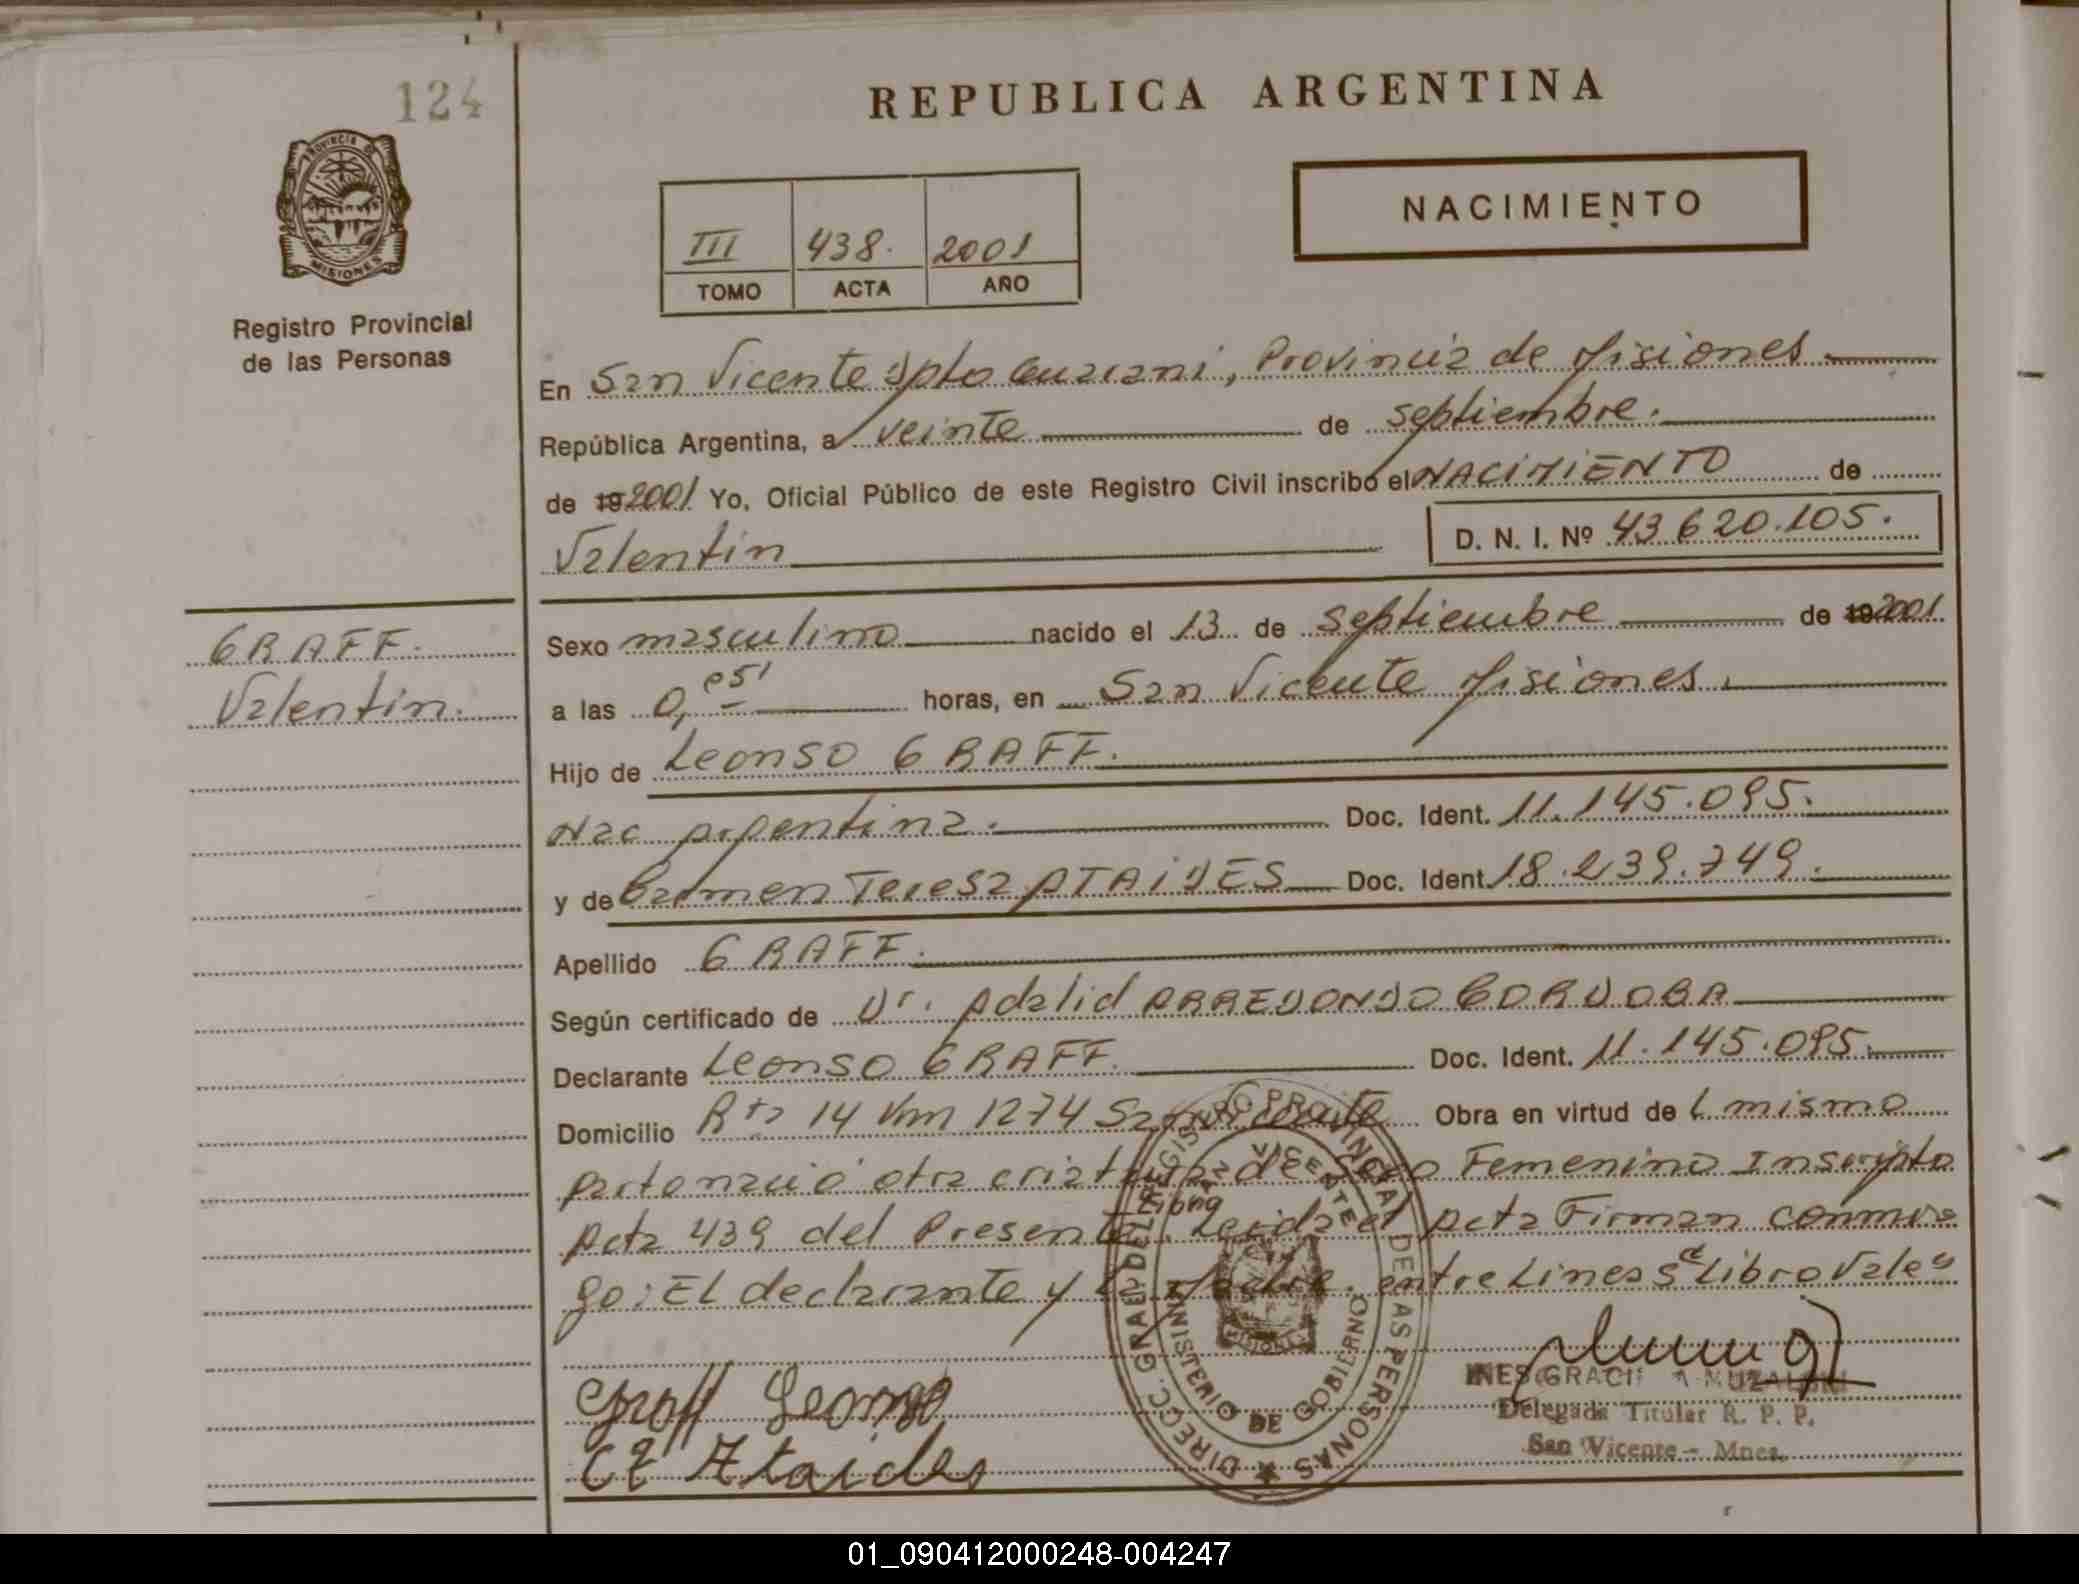 124
REPUBLICA ARGENTINA
PROVINCIA DE
MISIONES
NACIMIENTO
III 438. 2001
TOMO ACTA AÑO
Registro Provincial
de las Personas
En San Vicente Dpto Guarani, Provincia de Misiones
República Argentina, a veinte de septiembre.
de 192001 Yo, Oficial Público de este Registro Civil inscribo el NACIMIENTO de
Valentin D. N. I. Nº 43 620.105.
GRAFF.
Valentin.
Sexo masculino nacido el 13 de septiembre de 192001
a las 0,05' horas, en San Vicente Misiones.
Hijo de Leonso GRAFF.
Nac Argentina. Doc. Ident. 11.145.095.
y de Carmen Teresa ATAIDES Doc. Ident. 18.239.749.
Apellido GRAFF.
Según certificado de Dr. Adalid ARREDONDO CORDOBA
Declarante Leonso GRAFF. Doc. Ident. 11.145.095.
Domicilio Rta 14 Km 1274 San Vicente Obra en virtud de L mismo
Parto nació otra criatura de sexo Femenino Inscripto
Libro
Acta 439 del Presente. Leida el Acta Firman conmi
go: EL declarante y la Madre. entre Lineas Libro Vale
Graff Leonso
CT Ataides
DIRECC. GRAL. DEL REGISTRO PROVINCIAL DE LAS PERSONAS
SAN VICENTE
MINISTERIO DE GOBIERNO
MISIONES
INES GRACIELA
Delegada Titular R. P. P.
San Vicente - Mnes.
01_090412000248-004247